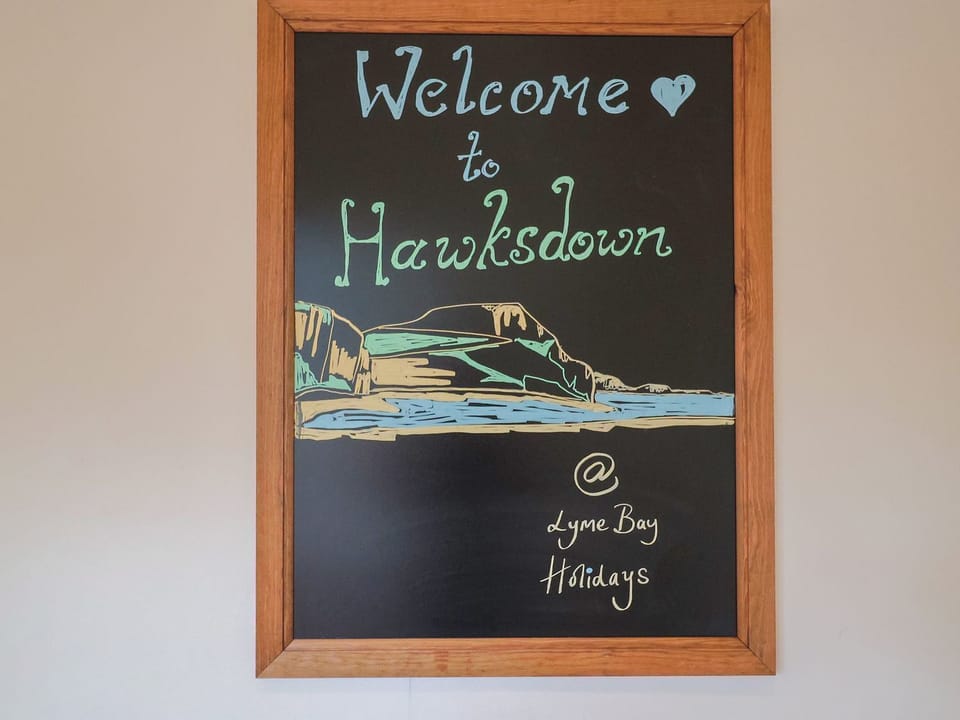 Welcome
to
Hawksdown
@
Lyme Bay
Holidays